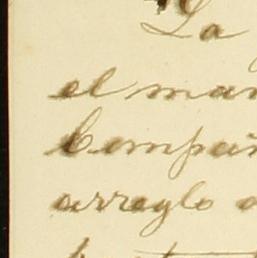 La
el man
Compañ
arreglo